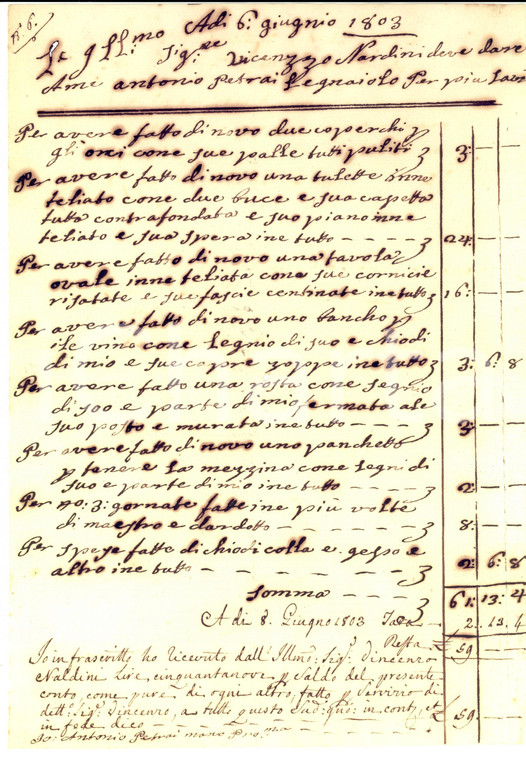 N.° 6.
Adi 6: giugno 1803
Lo Ill:mo Sig:re Vicenzzo Nardini deve dare
A me antonio Petrai Legnaiolo Per piu lavori
Per avere fatto di novo due coperchi p
gli orci cone sue palle tutti puliti 3: —
Per avere fatto di novo una tulette inne
teliato cone due buce e sua casetta
tutta contrafondata e suo piano inne
teliato e sua spera ine tutto — — — — 24: —
Per avere fatto di novo una tavola
ovale inne teliata cone sue cornicie
risatate e sue fascie centinate ine tutto 16: —
Per avere fatto di novo uno bancho p
ile vino cone legnio di suo e chiodi
di mio e sue copre zoppe ine tutto 3: 6: 8
Per avere fatto una rosta cone legnio
di soo e parte di mio fermata ale
suo posto e murata ine tutto — — — 3: —
Per avere fatto di novo uno panchetto
p tenere la mezzina cone legni di
suo e parte di mio ine tutto — — — 2: —
Per no: 3: gornate fatte ine più volte
di maestro e dardotto — — — — — 8: —
Per spese fatte di chiodi colla e gesso e
altro ine tutto — — — — — — 2: 6: 8
Somma — — — 61: 13: 4
A di 8. Giugno 1803 Tara — 2. 13. 4
Resta £ 59 — —
Io infrascritto ho ricevuto dall' Illmo: Sig:r Vincenzo
Naldini Lire cinquantanove p Saldo del presente
conto, come pure di ogni altro, fatto p servizio di
dett: Sig:r Vincenzo, a tutto questo Sud: gno: in cont, et
in fede dico — — — — — — £ 59. —
Io Antonio Petrai mano Pro:ma — — —